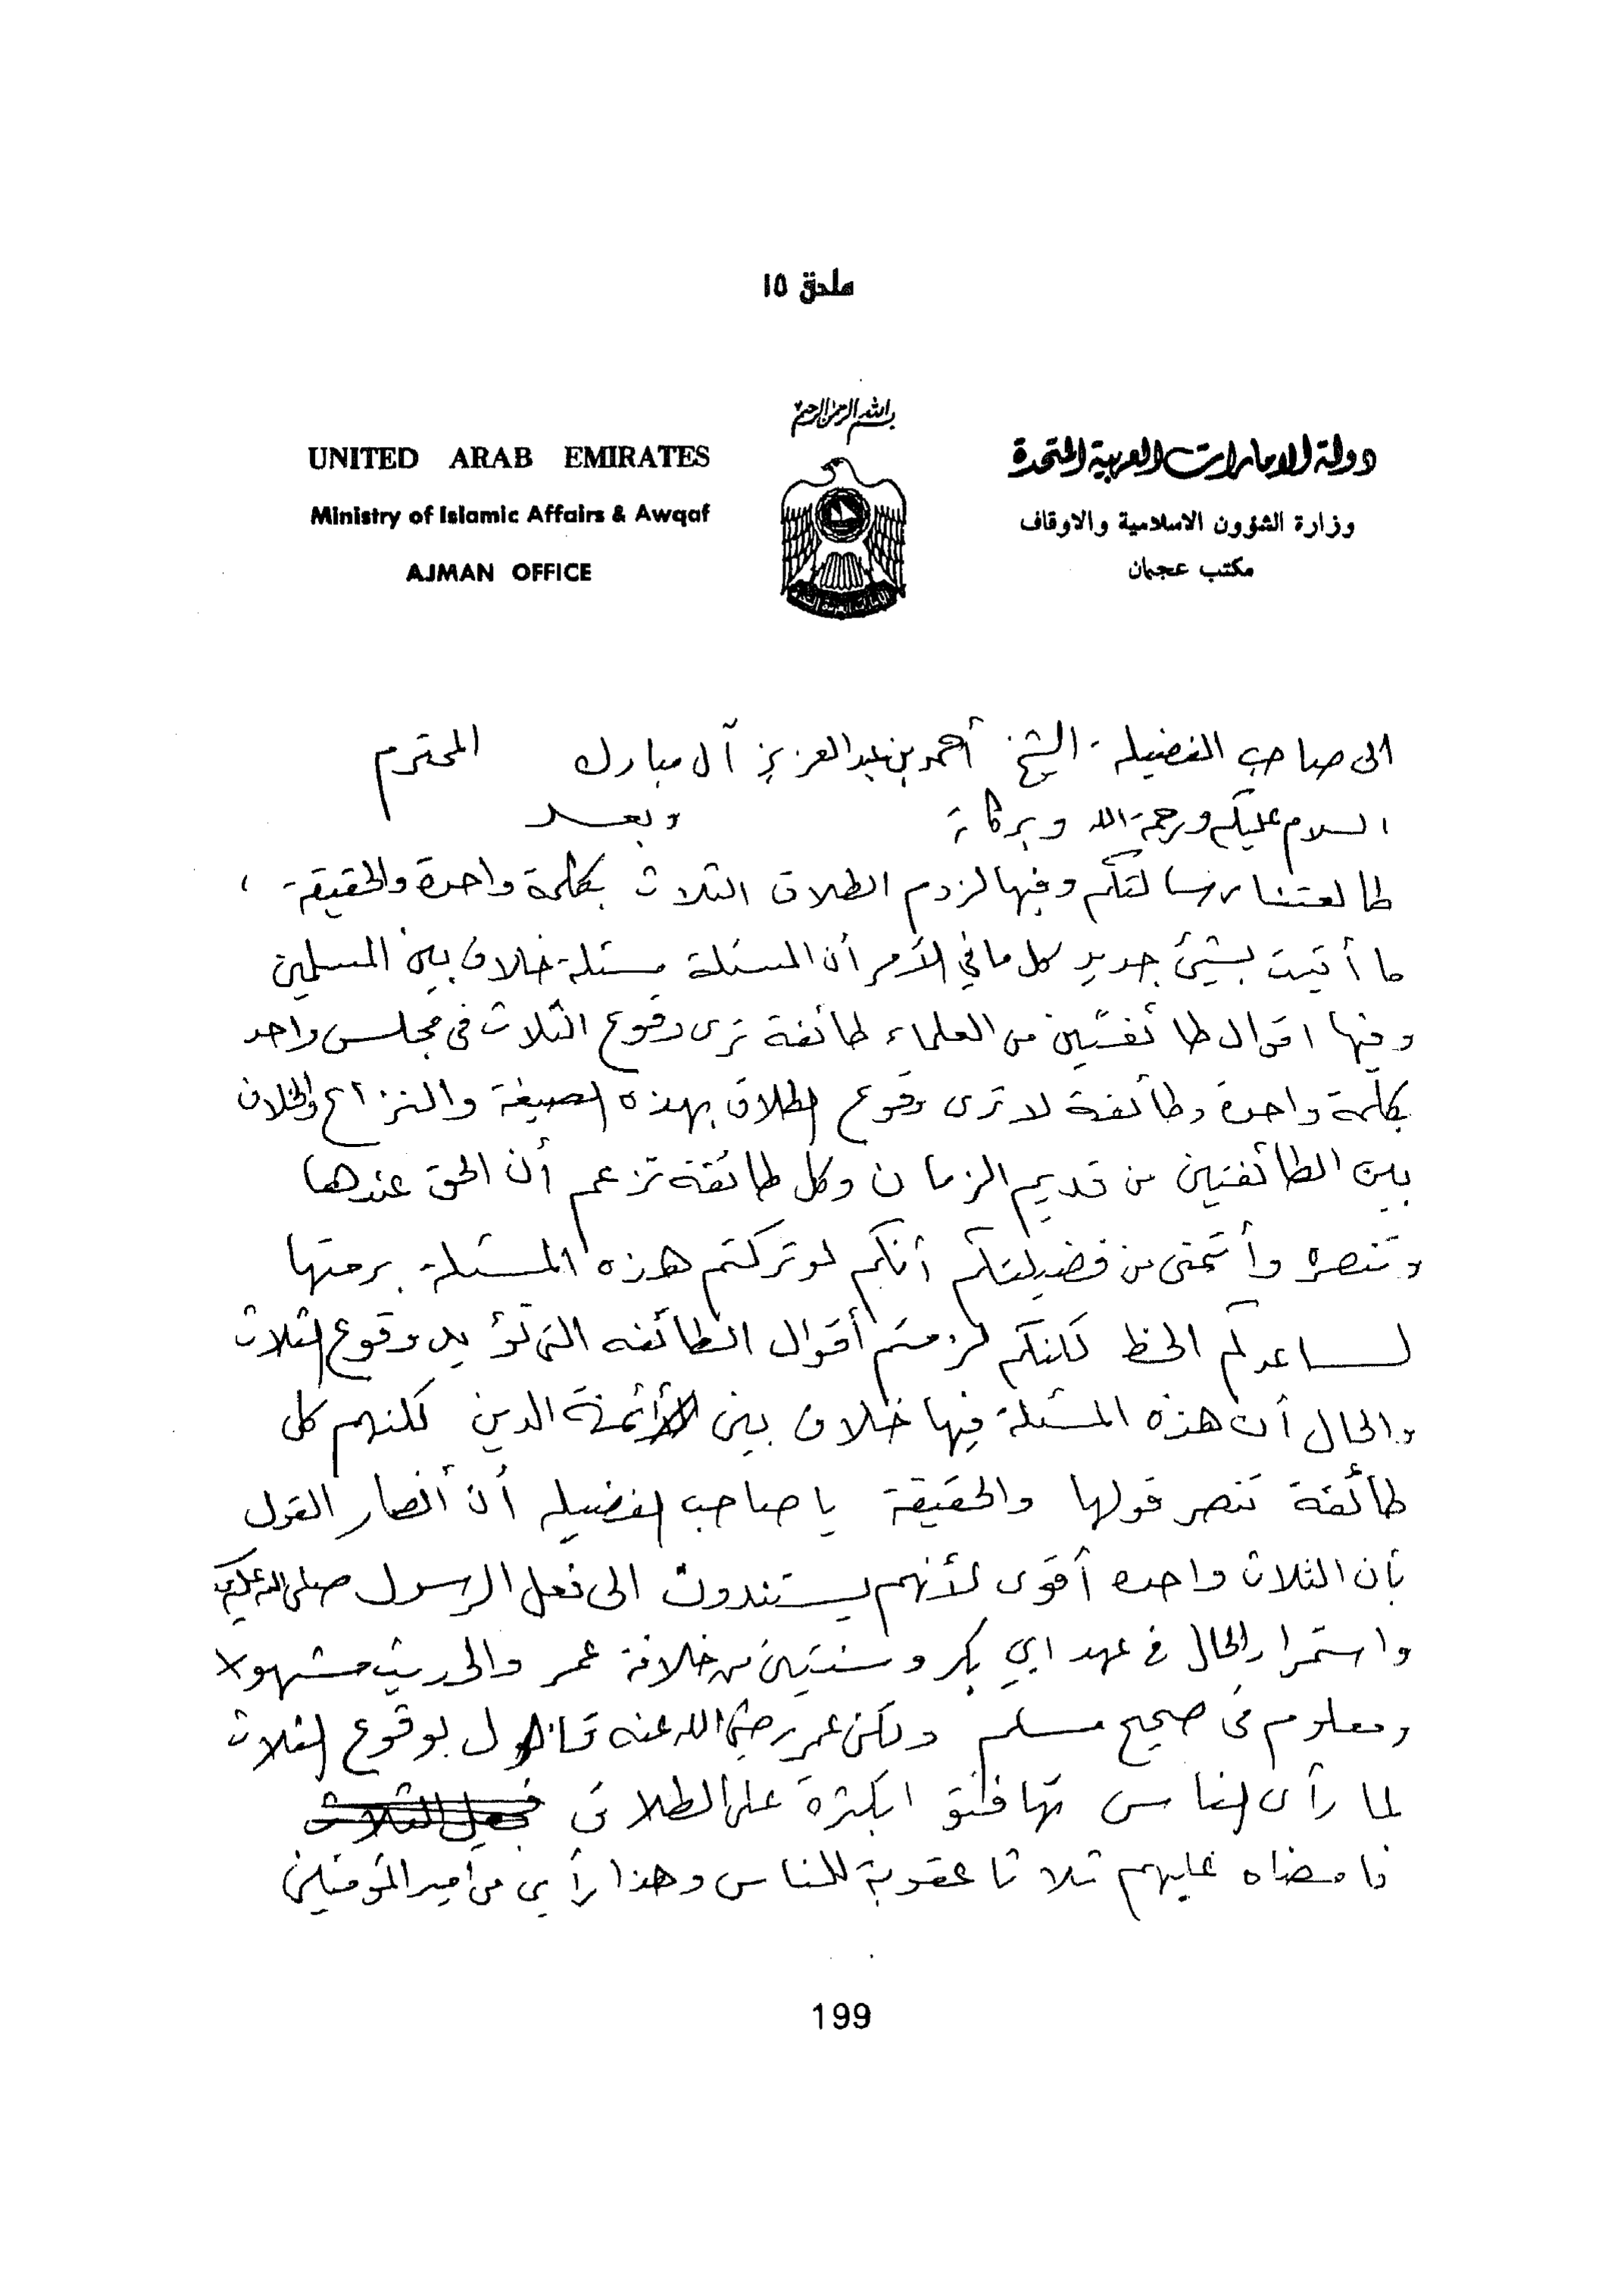 ملحق ١٥
بسم الله الرحمن الرحيم
UNITED ARAB EMIRATES
Ministry of Islamic Affairs & Awqaf
AJMAN OFFICE
دولة الامارات العربية المتحدة
وزارة الشؤون الاسلامية والاوقاف
مكتب عجمان
الى صاحب الفضيلة الشيخ أحمد بن عبد العزيز آل مبارك المحترم
السلام عليكم ورحمة الله وبركاته وبعد
طالعتنا رسالتكم وفيها لزوم الطلاق الثلاث بكلمة واحدة والحقيقة ،
ما أتيت بشيئ جديد كل ما في الأمر أن المسئلة مسئلة خلاف بين المسلمين
وفيها اقوال طائفتين من العلماء طائفة ترى وقوع الثلاث في مجلس واحد
بكلمة واحدة وطائفة لا ترى وقوع الطلاق بهذه الصيغة والنزاع والخلاف
بين الطائفتين من قديم الزمان وكل طائفة تزعم أن الحق عندها
وتنصره وأتمنى من فضيلتكم أنكم لو تركتم هذه المسئلة برمتها
لساعدكم الحظ لكنكم لزمتم أقوال الطائفه التي تؤيد وقوع الثلاث
والحال أن هذه المسئلة فيها خلاف بين الأئمة الدين لكنهم كل
طائفة تنصر قولها والحقيقة يا صاحب الفضيله أن أنصار القول
بأن الثلاث واحده أقوى لأنهم يستندون الى فعل الرسول صلى الله عليه
واستمرار الحال في عهد ابي بكر وسنتين من خلافة عمر والحديث مشهور
ومعلوم في صحيح مسلم ولكن عمر رضي الله عنه قال بوقوع الثلاث
لما رأى الناس بكثرة على الطلاق
فامضاه عليهم ثلاثا عقوبة للناس وهذا رأي من أمير المؤمنين
199